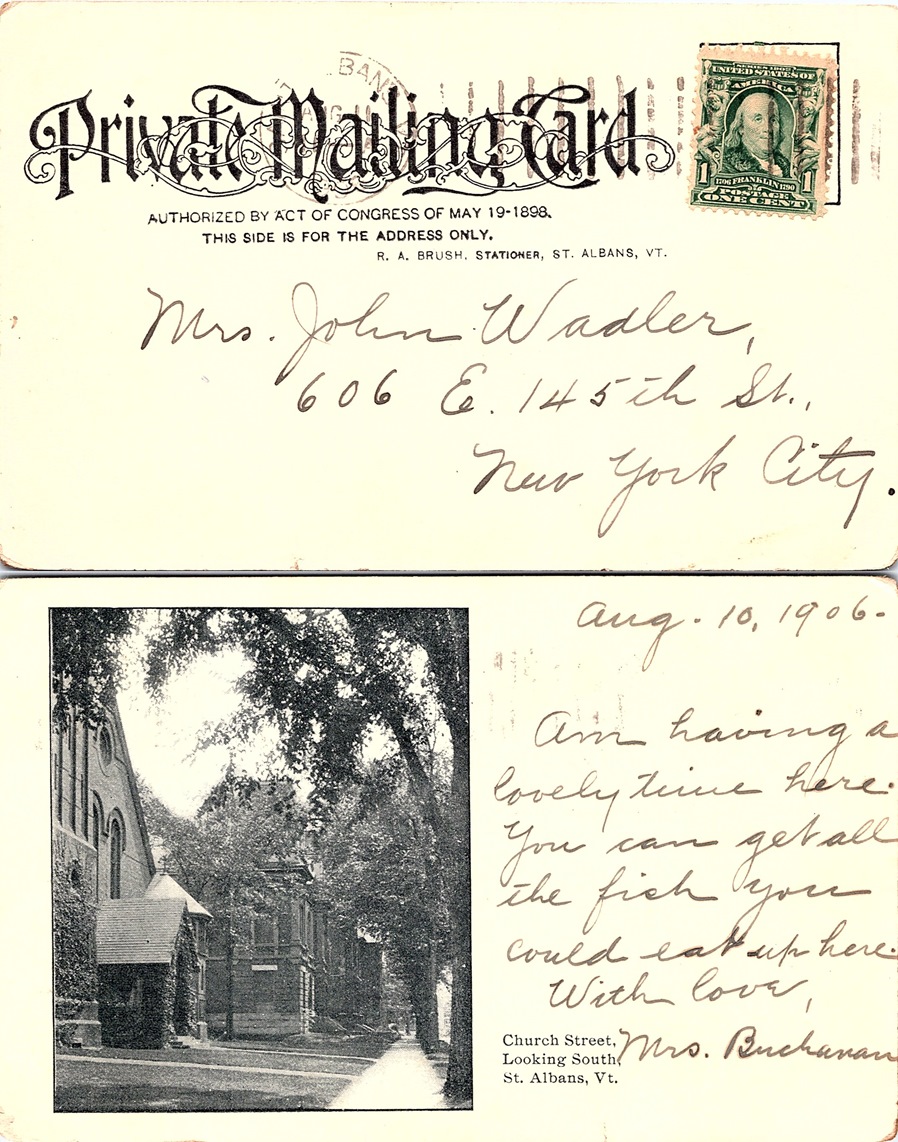 BAN
Private Mailing Card
SERIES 1902
UNITED STATES OF
AMERICA
1 1
1706 FRANKLIN 1790
POSTAGE
ONE CENT
AUTHORIZED BY ACT OF CONGRESS OF MAY 19-1898.
THIS SIDE IS FOR THE ADDRESS ONLY.
R. A. BRUSH, STATIONER, ST. ALBANS, VT.
Mrs. John Wadler,
606 E. 145th St.,
New York City.
Aug. 10, 1906.
Am having a
lovely time here.
You can get all
the fish you
could eat up here.
With love,
Mrs. Buchanan
Church Street,
Looking South,
St. Albans, Vt.